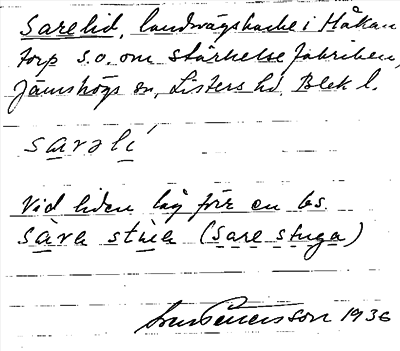 Sarelid, landsvägsbacke i Håkan
torp s.o. om stärkelsefabriken,
Jämshögs sn, Listers hd, Blek. l.
sarəlí
Vid liden låg förr en bs.
(Sare stuga)
1936